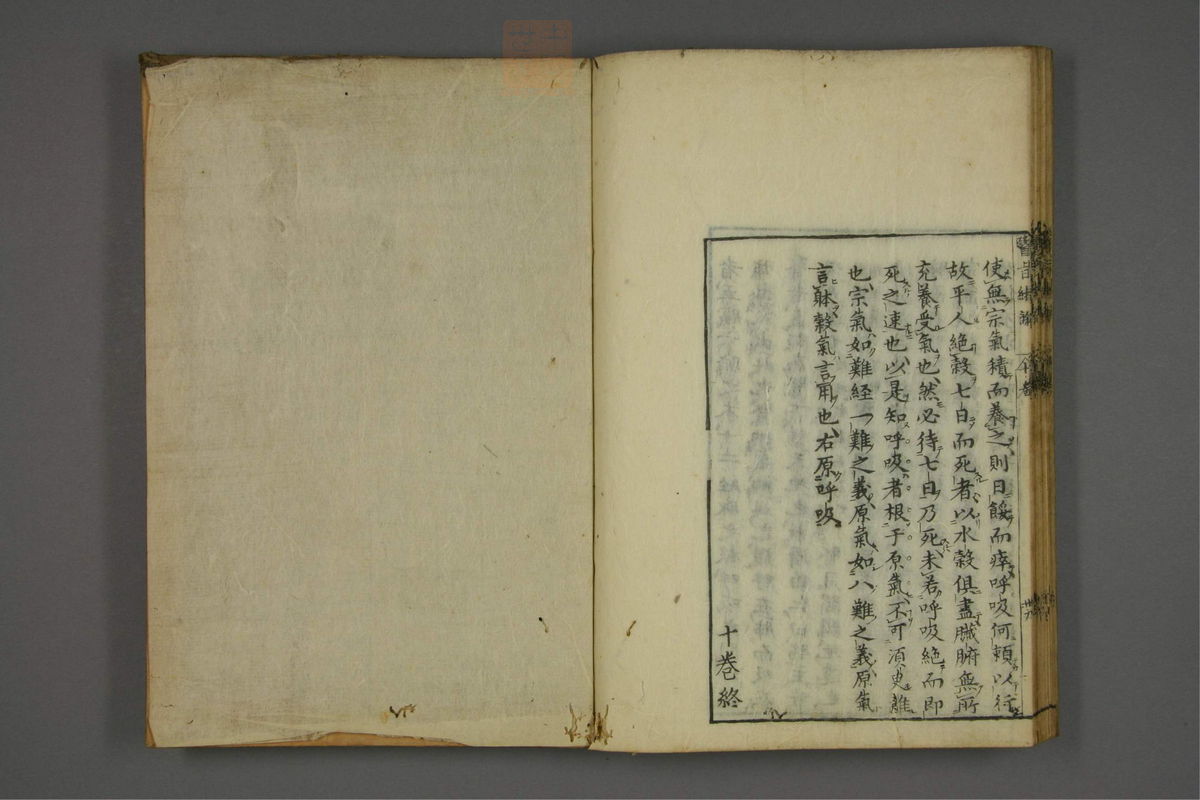 使無宗氣積而養之則日餒而瘁呼吸何頼以行
故平人絶穀七日而死者以水穀俱盡臓腑無所
充養受氣也然必待七日乃死未若呼吸絶而即
死之速也以是知呼吸者根于原氣不可須臾離
也宗氣如難経一難之義原氣如八難之義原氣
言躰穀氣言用也右原呼吸
十巻終
醫旨緒餘